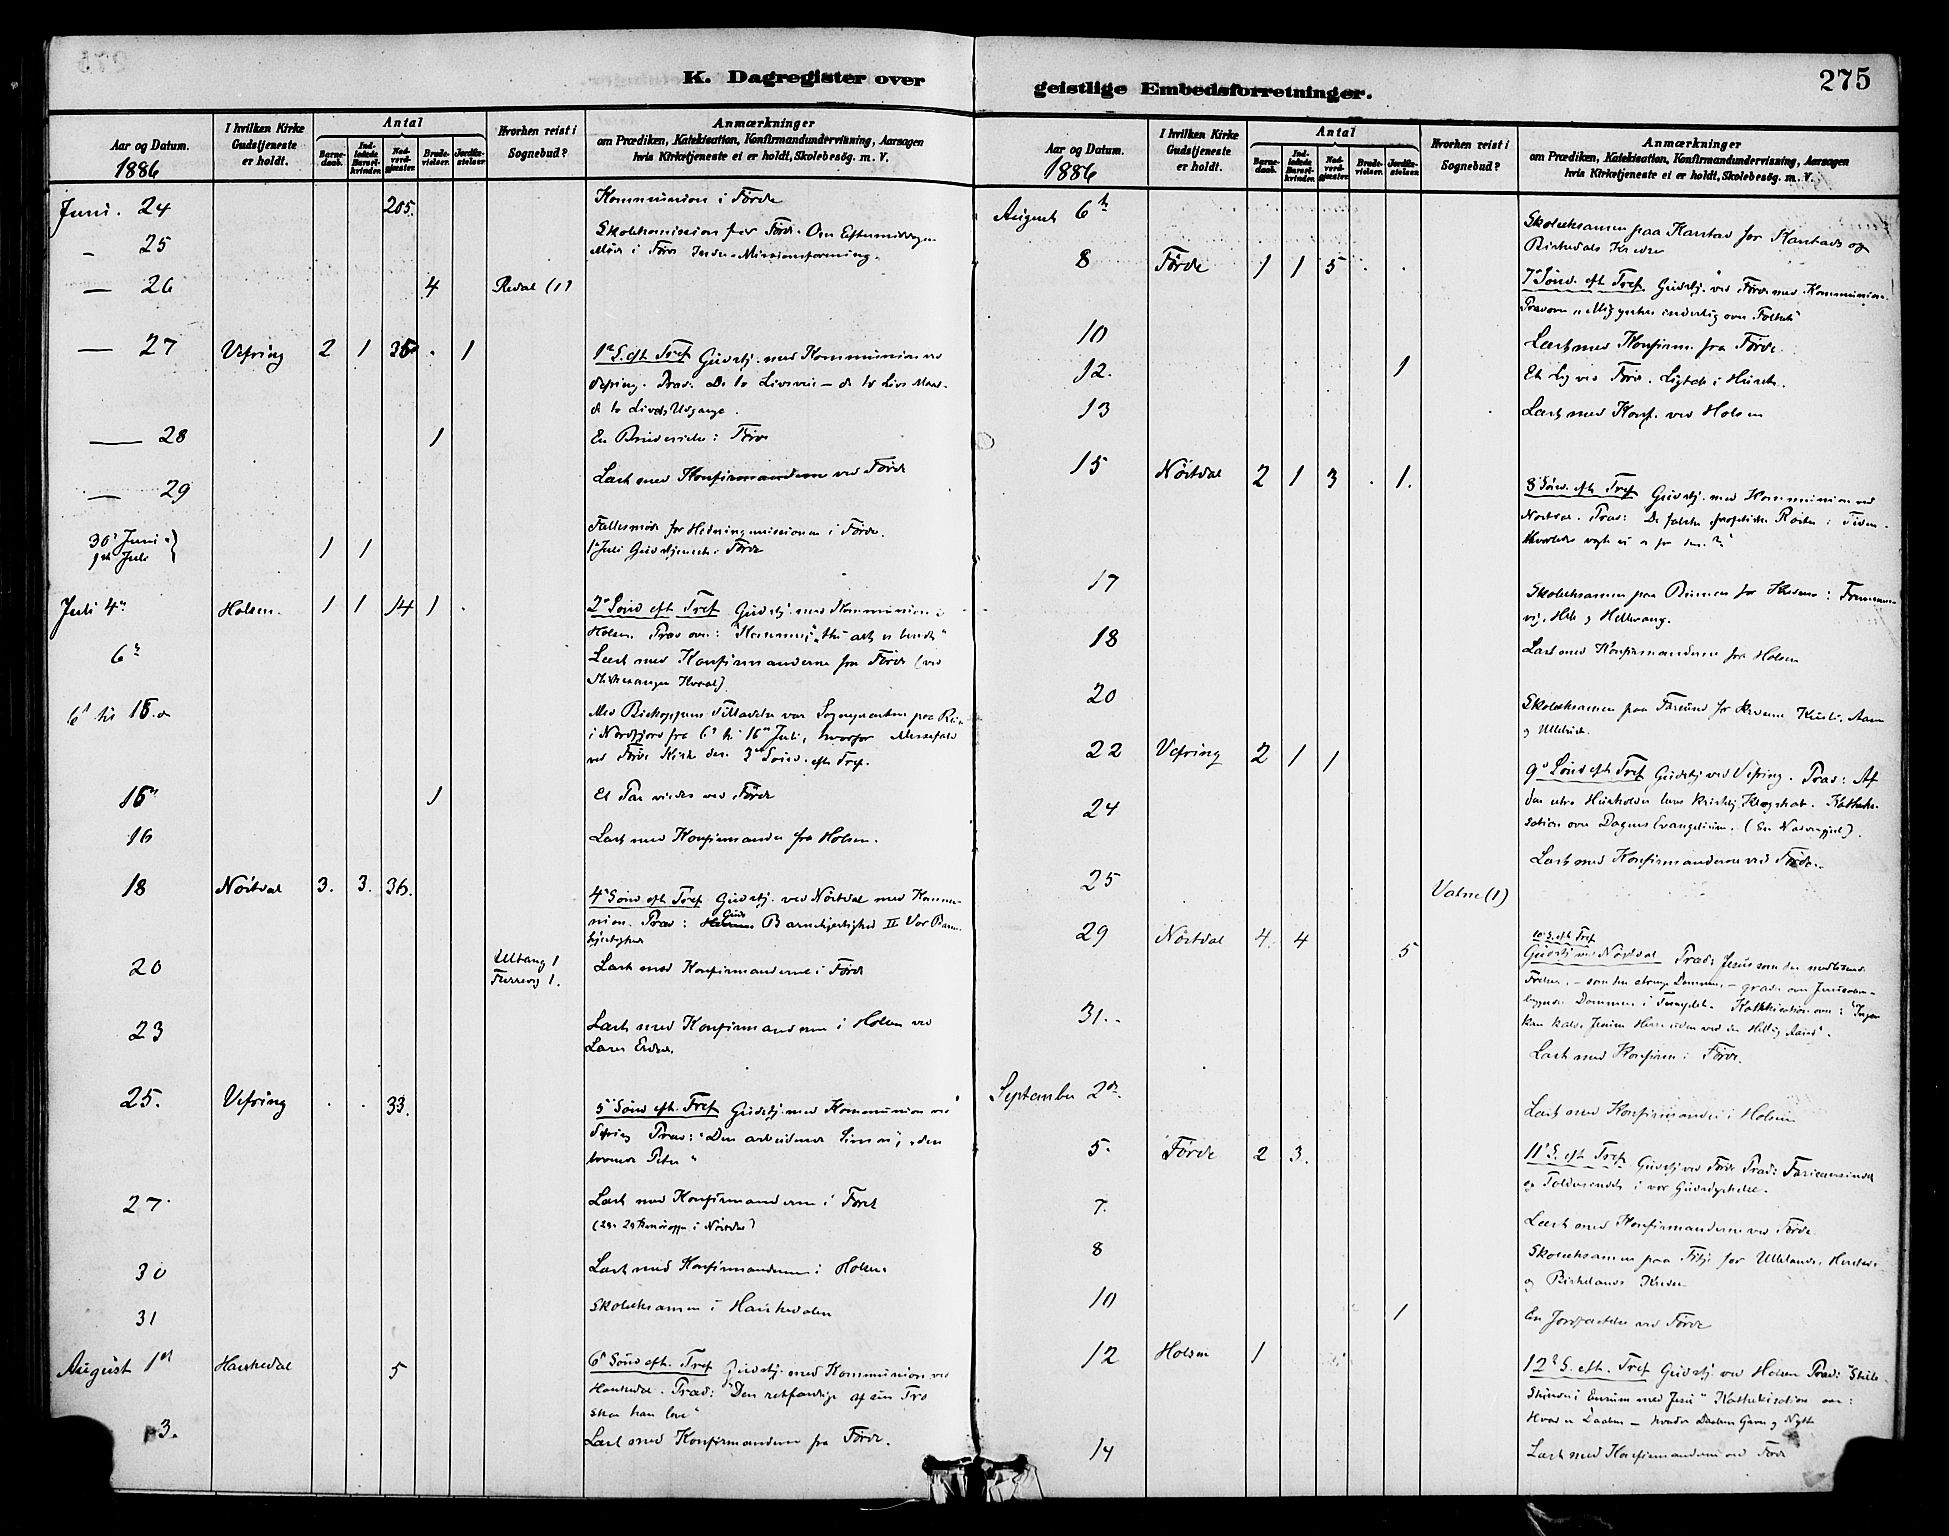 K. Dagregister over
Aar og Datum.
1886
I hvilken Kirke
Gudstjeneste
er holdt.
Antal
Barne-
daab.
Ind-
ledede
Barsel-
kvinder.
Nad-
verd-
gjæster.
Brude-
vielser.
Jordfæ-
stelser.
Hvorhen reist i
Sognebud?
Anmærkninger
om Prædiken, Katekisation, Konfirmandundervisning, Aarsagen
hvis Kirketjeneste ei er holdt, Skolebesøg. m. V.
Juni. 24 205. Kommunion i Førde
25 Skolekomission for Førde. Om Eftermiddagen
Møde i Førde Indre-Missionsforening.
26 4 Redal (1)
27 Vefring 2 1 1 1ste S. eft. Tref Gudstj. med Kommunion ved
Vefring. Præd: De to Livsveie - de to Livs Maal -
de to Livets Udgange.
28 1 En Brudevielse i Førde
29 Læst med Konfirmanderne ved Førde
30te Juni
1ste Juli 1 1 Fællesmøde for Hedningmissionen i Førde.
1ste Juli Gudstjeneste i Førde
Juli 4de Holsen. 1 1 14 1 2den Sønd eft Tref Gudstj. med Kommunion i
Holsen Præd over:
6te Læst med Konfirmanderne fra Førde (ved
6te til 15.de Med Biskoppens Tilladelse var Sognepræsten paa
i Nordfjord fra 6te til 16de Juli, hvorfor Messefald
ved Førde Kirke den 3die Sønd. eft Tref.
15de 1 Et Par viedes ved Førde
16 Læst med Konfirmander fra Holsen.
18 Nöstdal 3. 3. 36. 4de Sønd eft Tref Gudstj. ved Nöstdal med Kommu-
nion. Præd: Guds Barmhjertighed II Vor Barm-
hjertighed
20 Ulltang 1 Læst med Konfirmanderne i Førde
1.
23 Læst med Konfirmanderne i Holsen ved
25. Vefring . . 33. 5te Sønd eft. Tref Gudstj. med Kommunion ved
Vefring Præd: "Den arbeidende Simon", "den
troende Peter"
27 Læst med Konfirmanderne i Førde
30 Læst med Konfirmanderne i Holsen
31 Skoleeksamen i Haukedalen
August 1st Haukedal 5 6te Sønd eft. Tref Gudstj. med Kommunion ved
Haukedal. Præd: "Den retfærdige af sin Tro
skal han leve"
3. Læst med Konfirmanderne fra Førde.
geistlige Embedsforretninger.
275
Aar og Datum.
1886
I hvilken Kirke
Gudstjeneste
er holdt.
Antal
Barne-
daab.
Ind-
ledede
Barsel-
kvinder.
Nad-
verd-
gjæster.
Brude-
vielser.
Jordfæ-
stelser.
Hvorhen reist i
Sognebud?
Anmærkninger
om Prædiken, Katekisation, Konfirmandundervisning, Aarsagen
hvis Kirketjeneste ei er holdt, Skolebesøg. m. V.
August 6te Skoleeksamen paa Karstad for Karstads og
Birkedals Kredse
8 Førde 1 1 5 . . 7de Sønd. eft Tref Gudstj. ved Førde med Kommunion.
Præd over "Mig ynkes inderlig over Folket"
10 Læst med Konfirm. fra Førde.
12. 1 Et Lig ved Førde. Ligtale i Huset.
13 Læst med Konf. ved Holsen
15 Nöstdal 2 1 3 . 1. 8de Sønd. eft Tref Gudstj. med Kommunion ved
Nöstdal. Præd: De falske profetiske Røster i Tiden.
Hvorledes vogte vi os for dem?"
17 Skoleeksamen paa
18 Læst med Konfirmanderne fra Holsen
20 Skoleeksamen paa
22 Vefring 2 1 1 9de Sønd eft Tref Gudstj ved Vefring. Præd: Af
den utro Husholder lære kristelig Klogskab. Kateke-
sation over Dagens Evangelium.
24 Læst med Konfirmanderne ved Førde.
25 Valne (1)
29 Nöstdal 4. 4 5 10de S. eft Tref
Gudstj ved Nöstdal Præd: Jesus som den medlidende
Frelser, - som den strenge Dommer, - graad over Jerusalem -
begynder Dommen i Templet. Katekisation over: "Ingen
kan kalde Jesum Herre uden ved den Hellig Aand".
31. Læst med Konfirm. i Førde.
September 2den Læst med Konfirmander i Holsen
5. Førde 2 3. 11te S. eft Tref Gudstj ved Førde Præd: Farisæersindet
og Toldersindet i vor Gudsdyrkelse.
7. Læst med Konfirmanderne ved Førde
8 Skoleeksamen paa Fitje for Ullelands,
og Birkelands Kredse
10 1 En Jordfæstelse ved Førde
12 Holsen 1 12te S. eft. Tref Gudstj ved Holsen Præd:
Katekisation over:
Hvad er Daaben - hvad er Daabens Gavn og Nytte
14 Læst med Konfirmanderne ved Førde